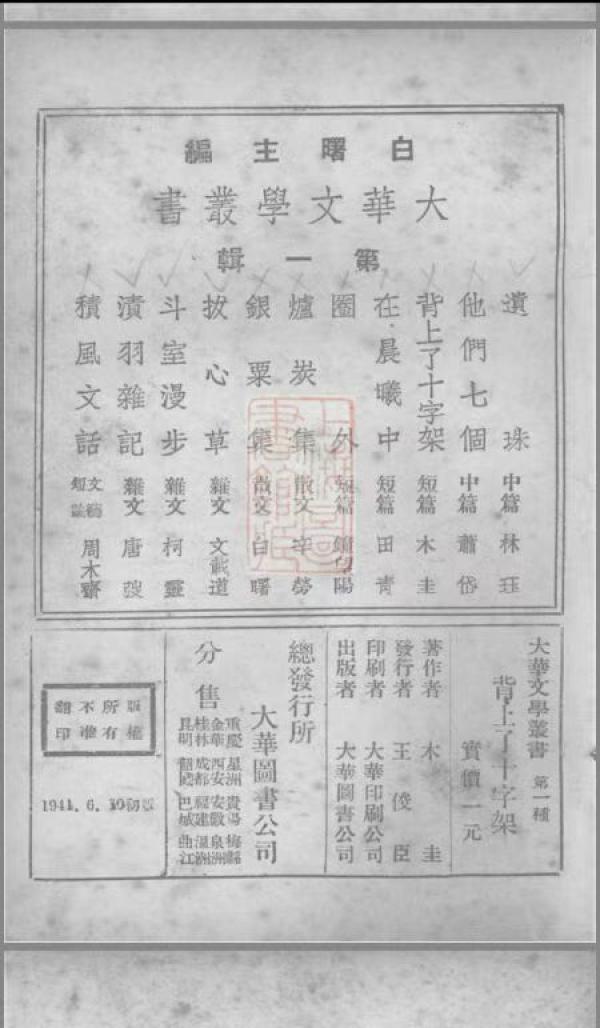 白曙主編
大華文學叢書
第一輯
遺珠 中篇 林珏
他們七個 中篇 蕭岱
背上了十字架 短篇 木圭
在晨曦中 短篇 田青
圈外 短篇 鍾望陽
爐炭集 散文 辛勞
銀粟集 散文 白曙
拔心草 雜文 文載道
斗室漫步 雜文 柯靈
漬羽雜記 雜文 唐弢
積風文話 文藝短論 周木齋
大華文學叢書 第一種
背上了十字架
實價一元
著作者 木圭
發行者 王俊臣
印刷者 大華印刷公司
出版者 大華圖書公司
總發行所
大華圖書公司
分售
重慶 星洲 貴陽 梅縣
金華 西安 安徽 泉洲
桂林 成都 福建 溫洲
昆明 韶關 巴城 曲江
版權所有
不准翻印
1941. 6. 10初版